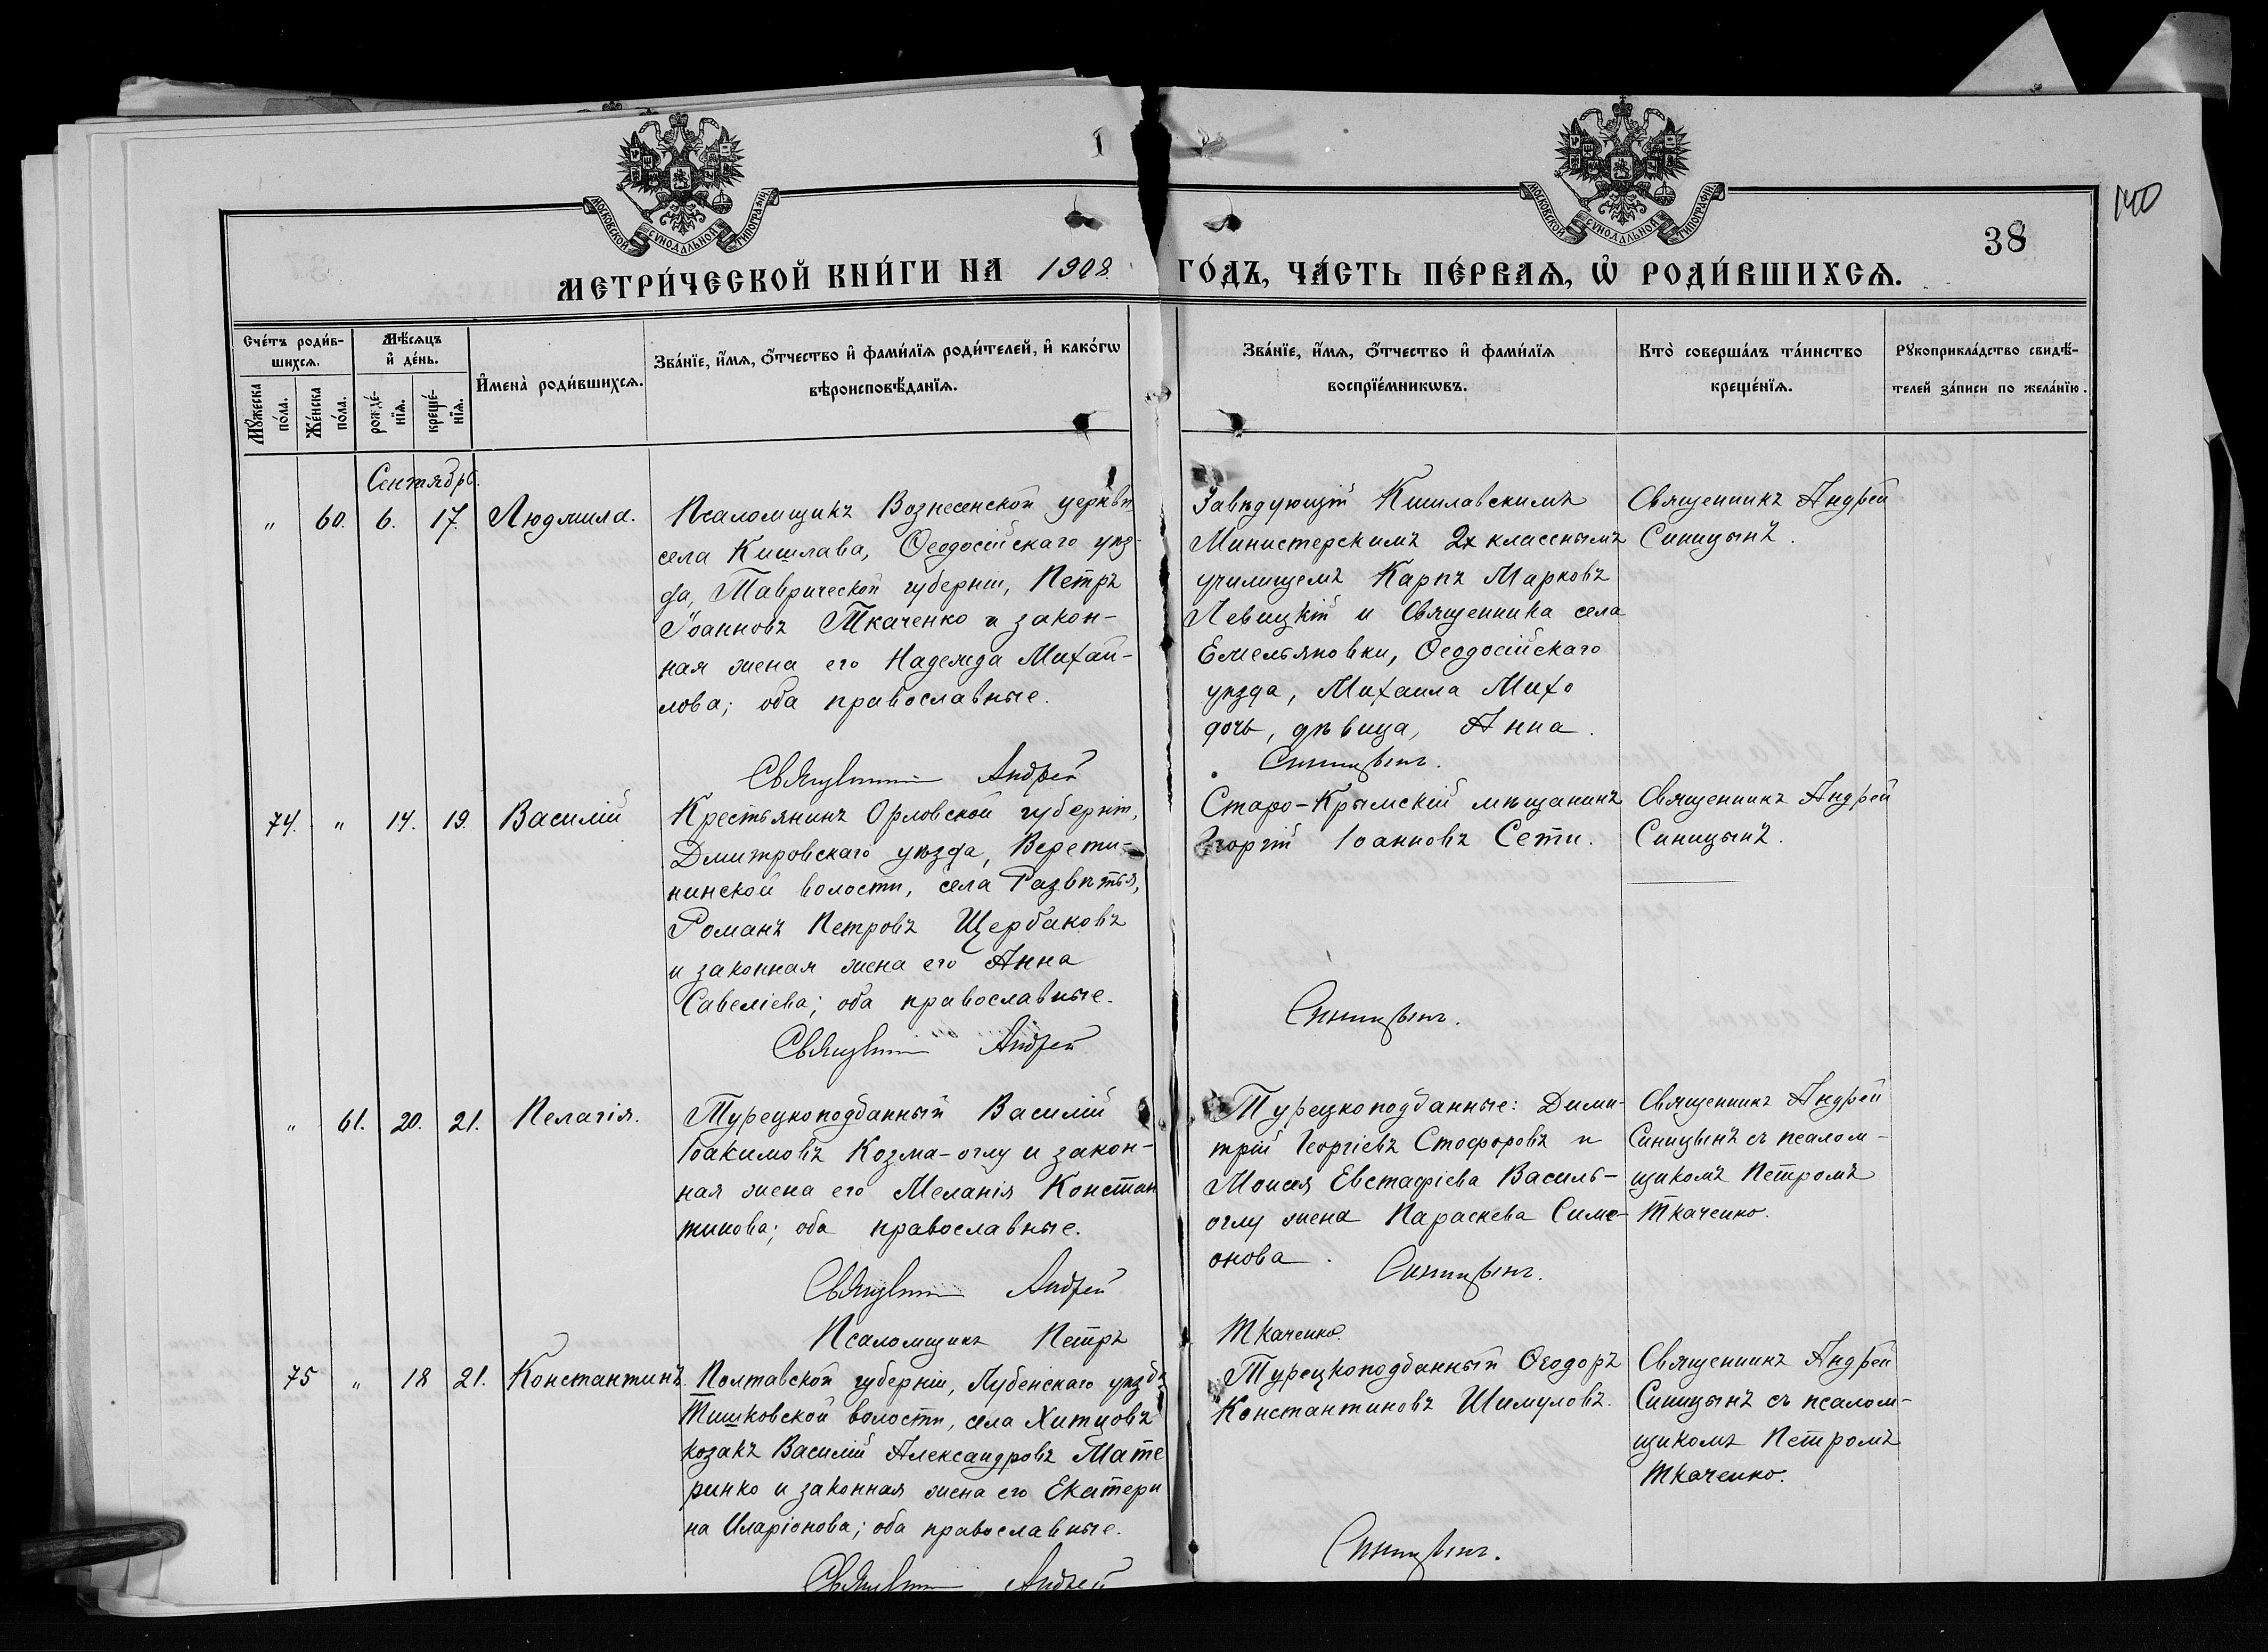 140
38
МОСКОВСКОЙ СѴНОДАЛЬНОЙ ТИПОГРАФІИ
МОСКОВСКОЙ СѴНОДАЛЬНОЙ ТИПОГРАФІИ
МЕТРИ́ЧЕСКОЙ КНИ́ГИ НА 1908 ГО́ДЪ, ЧА́СТЬ ПЕ́РВАѦ, Ѡ҆ РОДИ́ВШИХСѦ.
Сче́тъ роди́в-
шихсѧ.
Мꙋ́жеска
по́ла.
Же́нска
по́ла.
Мѣ́сѧцъ
и҆ де́нь.
рожде́-
нїѧ.
креще́-
нїѧ.
И҆мена̀ роди́вшихсѧ.
Зва́нїе, и҆́мѧ, ѻ҆́тчество и҆ фами́лїѧ роди́телей, и҆ како́гѡ
вѣроисповѣ́данїѧ.
Зва́нїе, и҆́мѧ, ѻ҆́тчество и҆ фами́лїѧ
воспрїе́мникѡвъ.
Кто̀ соверша́лъ та́инство
креще́нїѧ.
Рꙋкоприкла́дство свидѣ́-
телей за́писи по жела́нїю.
Сентябрь.
" 60. 6. 17. Людмила.
Псаломщикъ Вознесенской церкви
села Кишлава, Ѳеодосійскаго уѣз-
да, Таврической губерніи, Петръ
Іоанновъ Ткаченко и закон-
ная жена его Надежда Михай-
лова; оба православные.
Завѣдующій Кишлавскимъ
Министерскимъ 2х класснымъ
училищемъ Карпъ Марковъ
Левицкій и Священника села
Емельяновки, Ѳеодосійскаго
уѣзда, Михаила Михо
дочь, дѣвица, Анна.
Священникъ Андрей
Синицынъ.
Священникъ Андрей Синицынъ.
74. " 14. 19. Василій
Крестьянинъ Орловской губерніи,
Дмитровскаго уѣзда, Верети-
нинской волости, села Развѣтья,
Романъ Петровъ Щербаковъ
и законная жена его Анна
Савеліева; оба православные.
Старо-Крымскій мѣщанинъ
Георгій Іоанновъ Сети.
Священникъ Андрей
Синицынъ.
Священникъ Андрей Синицынъ.
" 61. 20. 21. Пелагія.
Турецкоподданный Василій
Іоакимовъ Козма-оглу и закон-
ная жена его Меланія Констан
тинова; оба православные.
Турецкоподданные: Дими-
трій Георгіевъ Стофоровъ и
Моисея Евстафіева Василь-
оглу жена Параскева Симе-
онова.
Священникъ Андрей
Синицынъ съ псалом-
щикомъ Петромъ
Ткаченко.
Священникъ Андрей Синицынъ.
Псаломщикъ Петръ Ткаченко.
75 " 18 21. Константинъ.
Полтавской губерніи, Лубенскаго уѣзда
Тишковской волости, села Хитцовъ
козакъ Василій Александровъ Мате
ринко и законная жена его Екатери
на Иларіонова; оба православные.
Турецкоподданный Ѳеодоръ
Константиновъ Шимуловъ.
Священникъ Андрей
Синицынъ съ псалом-
щикомъ Петромъ
Ткаченко.
Священникъ Андрей Синицынъ.